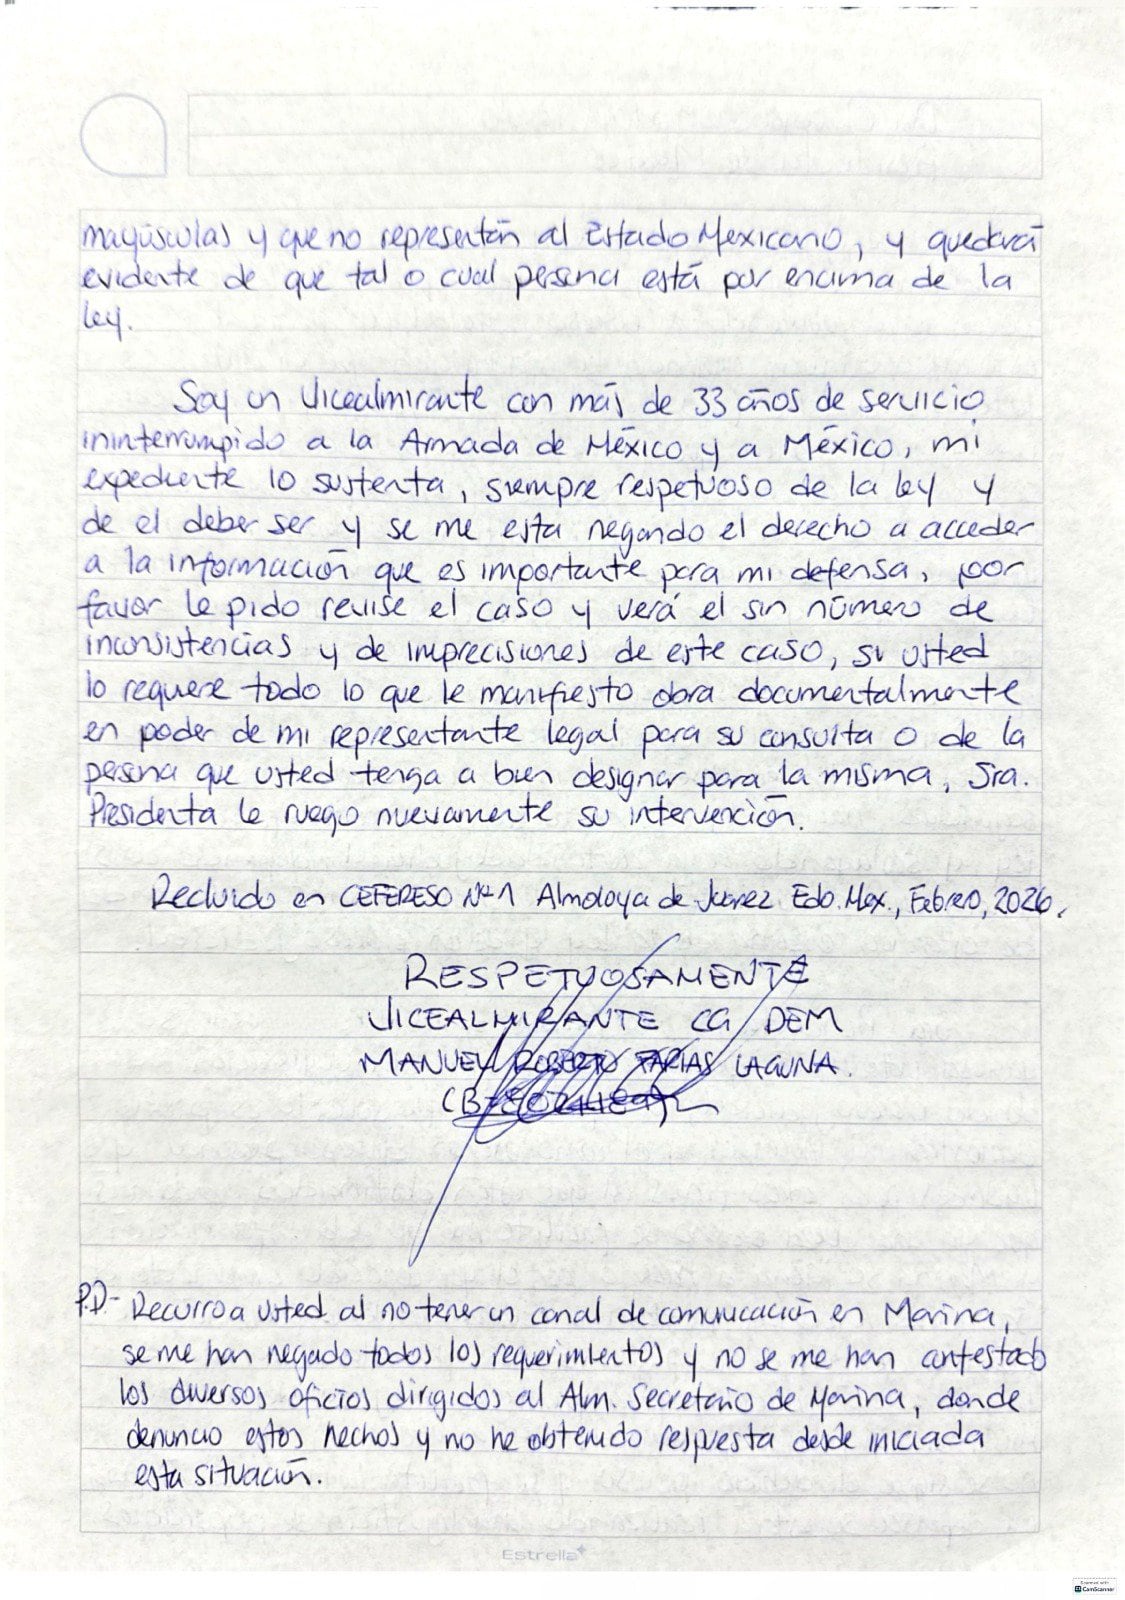 mayúsculas y que no representan al Estado Mexicano, y quedará
evidente de que tal o cual persona está por encima de la
ley.
Soy un Vicealmirante con más de 33 años de servicio
ininterrumpido a la Armada de México y a México, mi
expediente lo sustenta, siempre respetuoso de la ley y
de el deber ser y se me esta negando el derecho a acceder
a la información que es importante para mi defensa, por
favor le pido revise el caso y verá el sin número de
inconsistencias y de imprecisiones de este caso, si usted
lo requiere todo lo que le manifiesto obra documentalmente
en poder de mi representante legal para su consulta o de la
persona que usted tenga a bien designar para la misma, Sra.
Presidenta le ruego nuevamente su intervención.
Recluido en CEFERESO Nº 1 Almoloya de Juarez Edo. Mex., Febrero, 2026.
RESPETUOSAMENTE
VICEALMIRANTE CG DEM
MANUEL ROBERTO FARIAS LAGUNA.
P.D- Recurro a usted al no tener un canal de comunicación en Marina,
se me han negado todos los requerimientos y no se me han contestado
los diversos oficios dirigidos al Alm. Secretario de Marina, donde
denuncio estos hechos y no he obtenido respuesta desde iniciada
esta situación.
Estrella
Scanned with
CamScanner